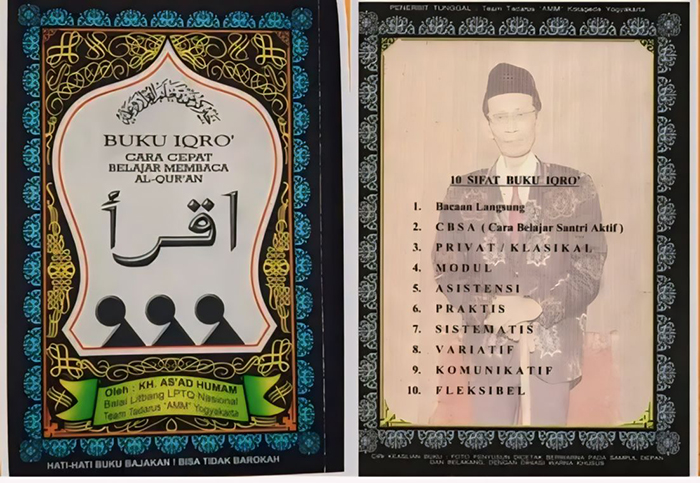 BUKU IQRO'
CARA CEPAT
BELAJAR MEMBACA
AL-QUR'AN
اقرأ
Oleh : KH. AS'AD HUMAM
Balai Litbang LPTQ Nasional
Team Tadarus "AMM" Yogyakarta
HATI-HATI BUKU BAJAKAN ! BISA TIDAK BAROKAH
PENERBIT TUNGGAL : Team Tadarus "AMM" Kotagede Yogyakarta
10 SIFAT BUKU IQRO'
1. Bacaan Langsung
2. CBSA ( Cara Belajar Santri Aktif )
3. PRIVAT / KLASIKAL
4. MODUL
5. ASISTENSI
6. PRAKTIS
7. SISTEMATIS
8. VARIATIF
9. KOMUNIKATIF
10. FLEKSIBEL
CIRI KEASLIAN BUKU : FOTO PENYUSUN DICETAK BERWARNA PADA SAMPUL DEPAN
DAN BELAKANG, DENGAN DEGASI WARNA KHUSUS